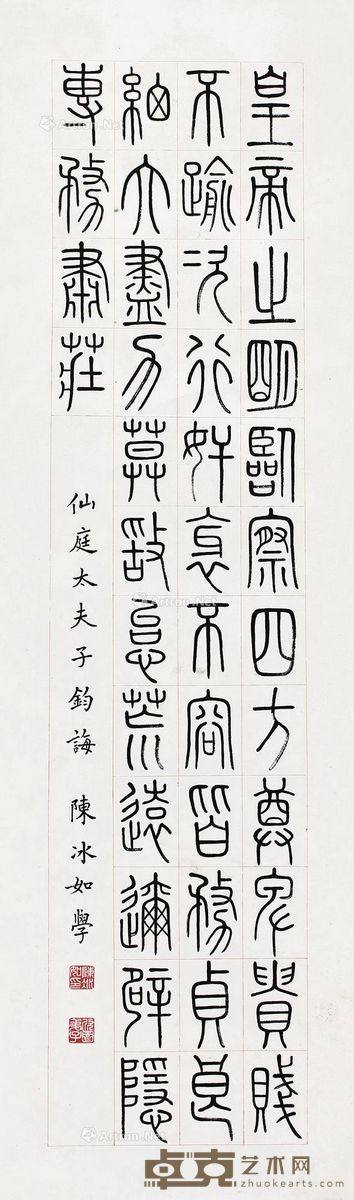 皇帝之明臨察四方尊卑貴賤
不踰次行奸邪不容皆務貞良
細大盡力莫敢怠荒遠邇辟隱
專務肅莊
仙庭太夫子鈞誨 陳冰如學
Artron.Net
卓克艺术网
zhuokearts.com